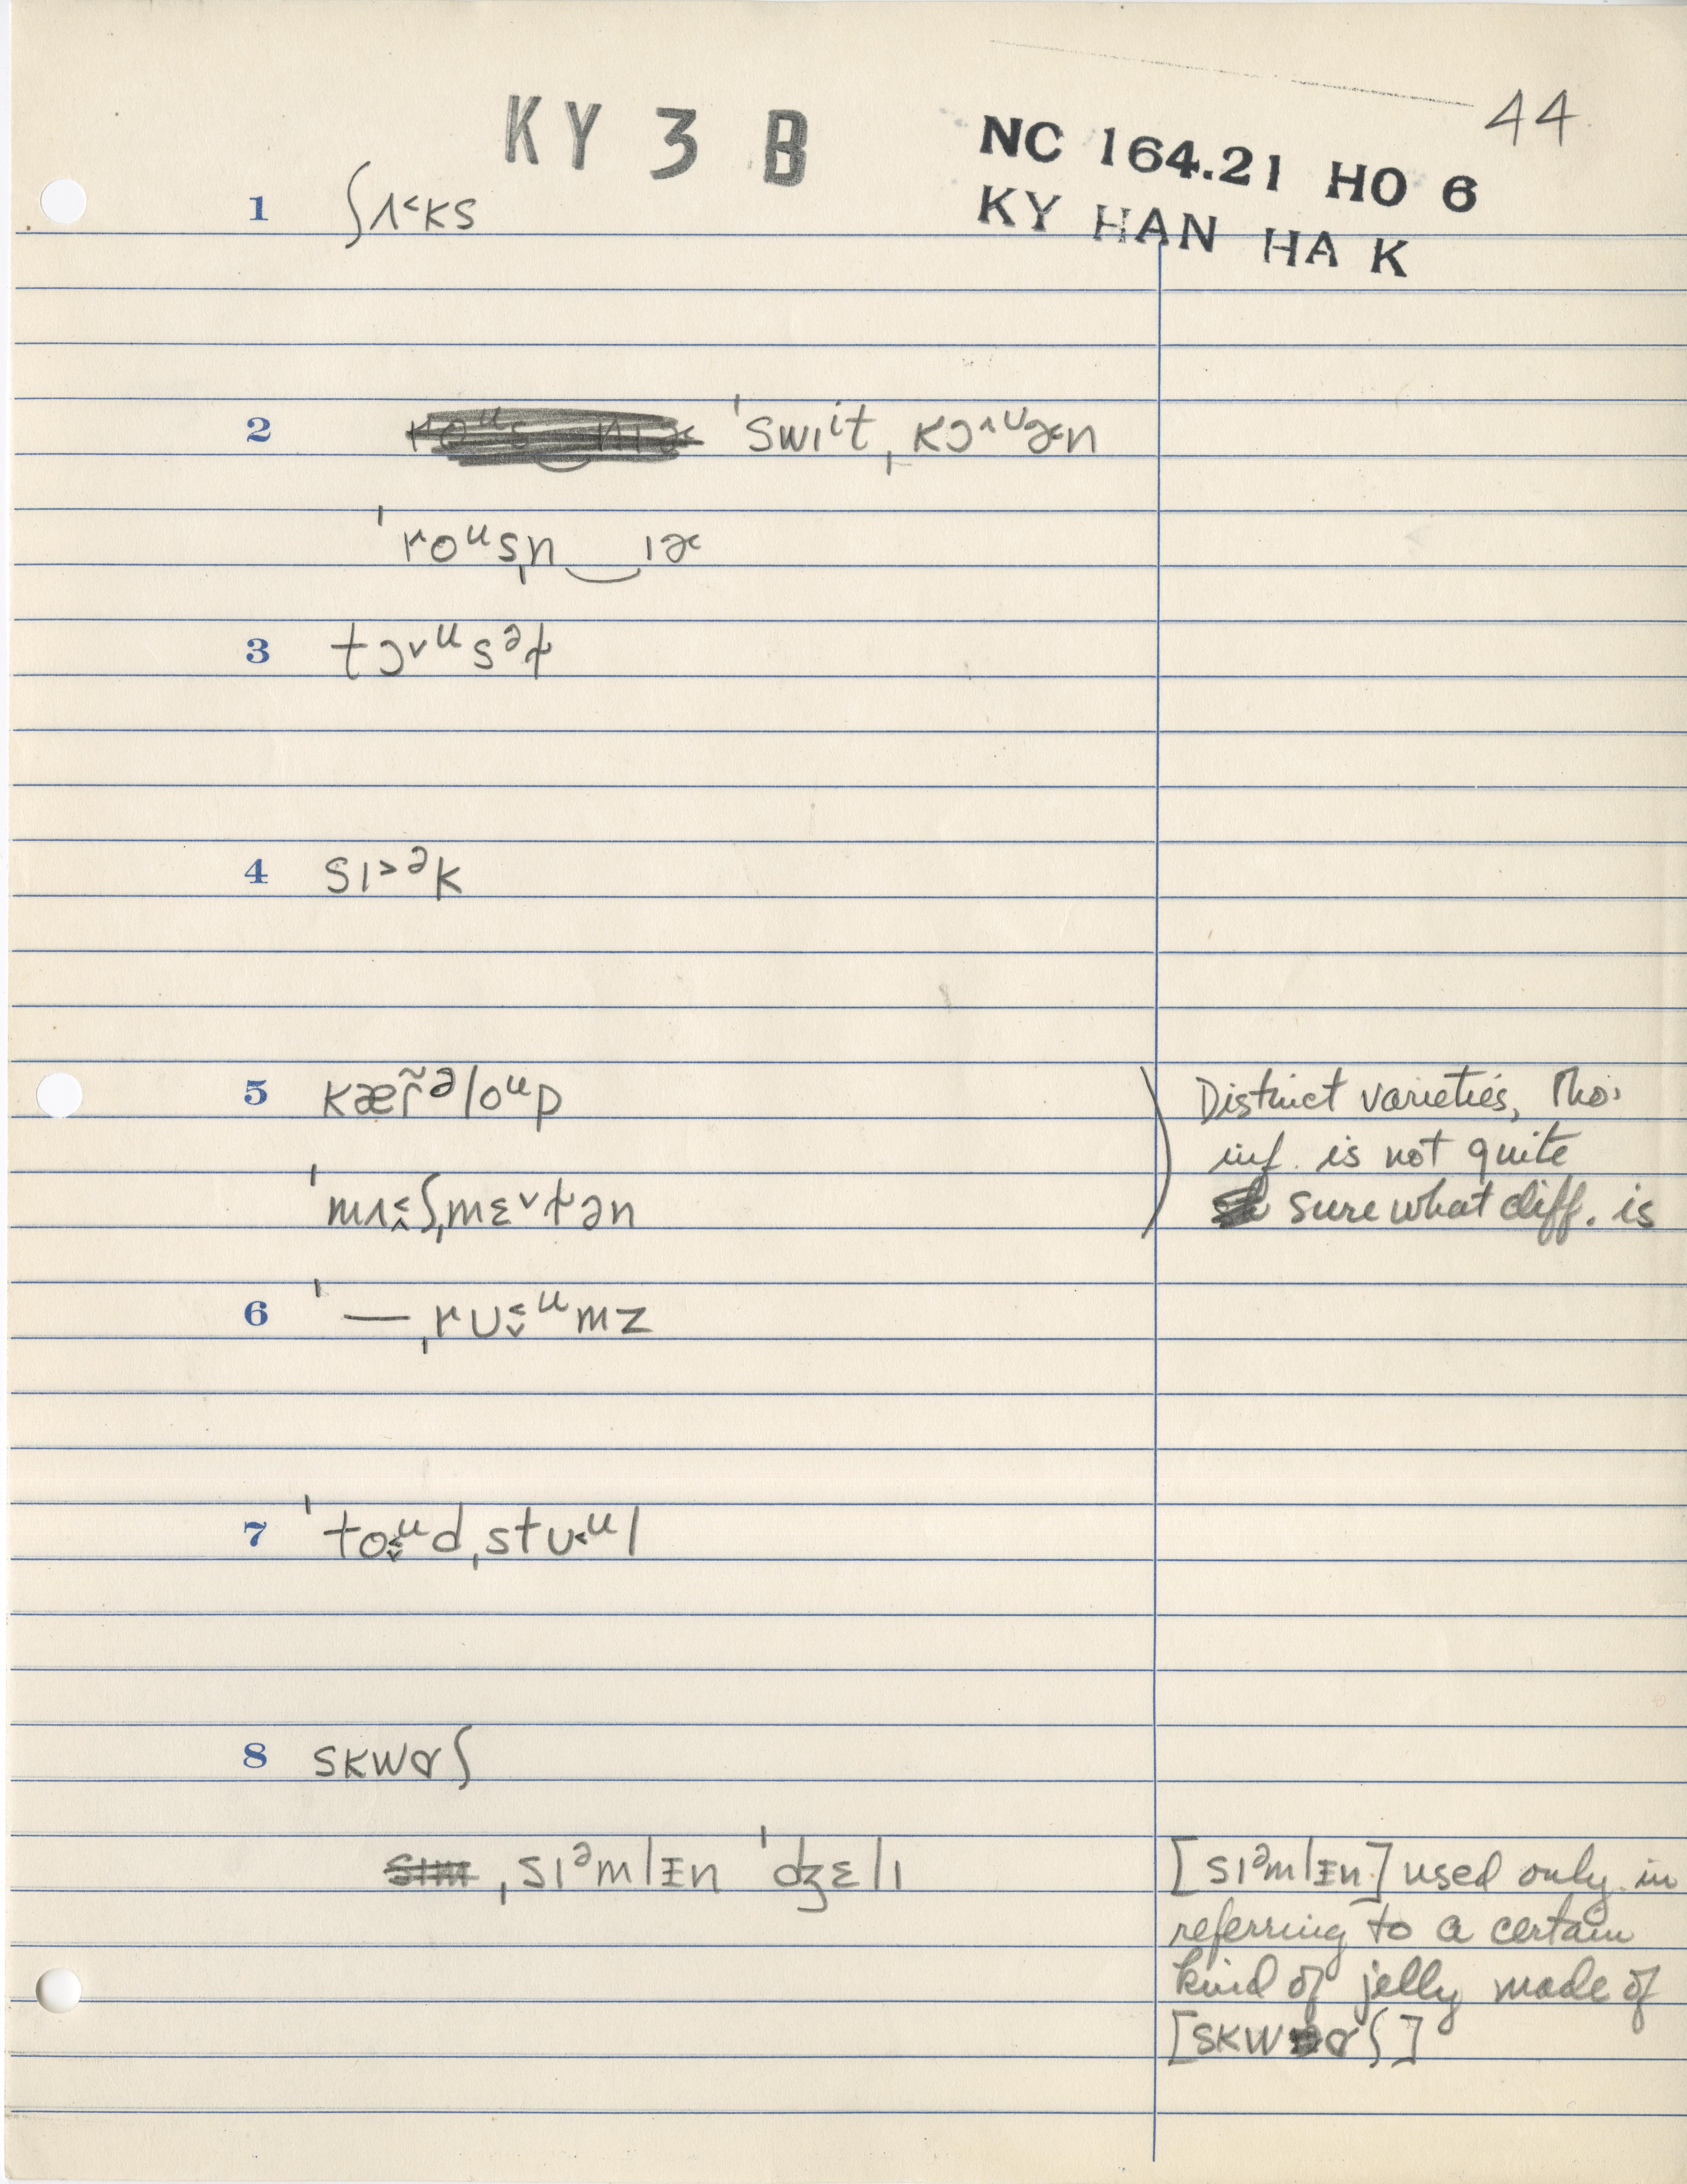 44
KY 3 B
NC 164.21 HO 6
KY HAN HA K
1 ʃʌ˂ks
2 ˈswɪit ˌkɔ˄ʊɚn
ˈroᵘsn̩‿ɪɚ
3 tɔ˅ᵘsəɫ
4 sɪ˃ᵊk
5 kær̃ᵊloᵘp
Distinct varieties, tho'
inf. is not quite
ˈmʌ˂˄ʃˌmɛ˅ɫən
sure what diff. is
6 ˈ—ˌrʊ˂˅ᵘmz
7 ˈto˂˅ᵘdˌstʊ˂ᵘl
8 skwɑʃ
ˌsɪᵊmlɪn ˈdʒɛlɪ
[sɪᵊmlɪn] used only in
referring to a certain
kind of jelly made of
[skwɑʃ]